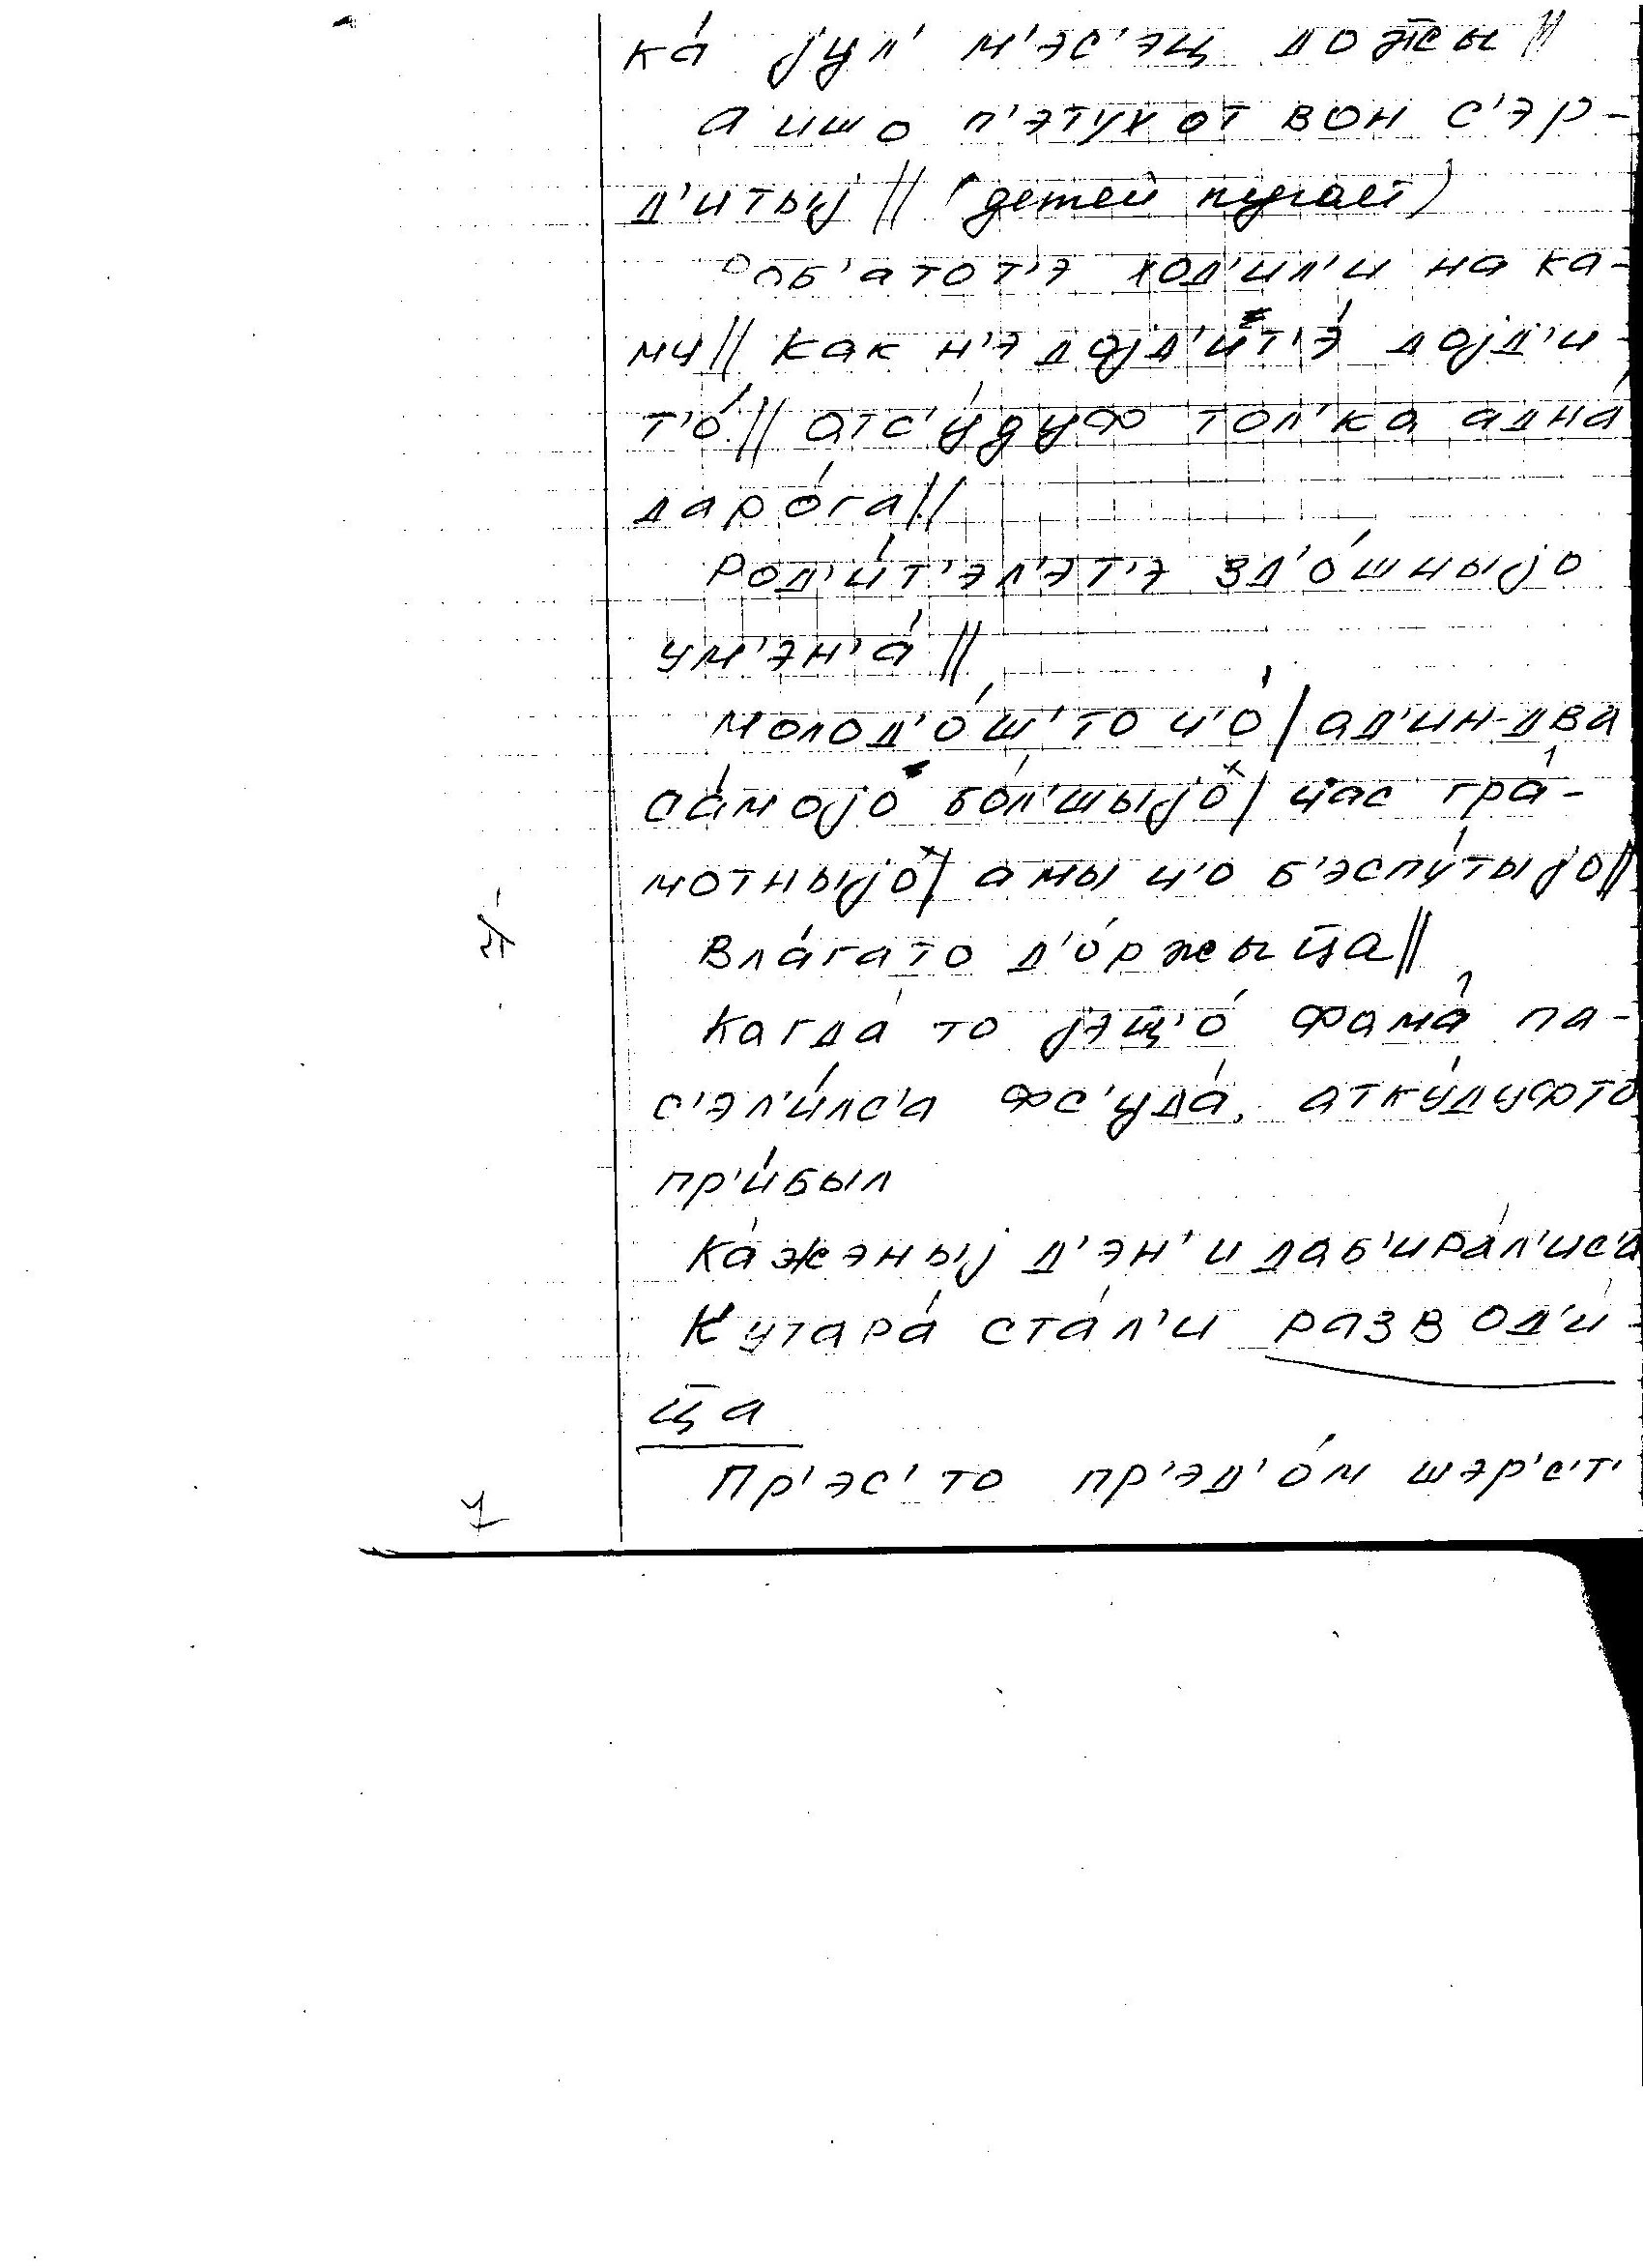 ка́ јул' м'эс'эц дож̅ы ||
а ишо п'этух от вон с'эр-
д'итыј || (детей пугает)
роб'атот'э ход'ил'и на ка-
мч || как н'э дојд'ит'э́ дојд'и-
т'о́ || отс'у́дуф тол'ка адна́
даро́га ||
Род'и́т'эл'эт'э зд'о́шныјо
ум'эн'а́ ||
Молод'о́ш'то ч'о́ | ад'ин-два
са́мојо бо́л'шыјо | час гра́-
мотныјо | а мы ч'о б'эспу́тыјо ||
Вла́гато д'о́ржыц̅а ||
Кагда́ то јэщ'о́ Фома́ па-
с'эл'и́лс'а фс'уда́, атку́дуфто
пр'и́был
Ка́жэныј д'эн' и даб'ира́л'ис'а
Кутара́ ста́л'и развод'и́-
ц̅а
Пр'эс'то пр'эд'о́м шэр'с'т'